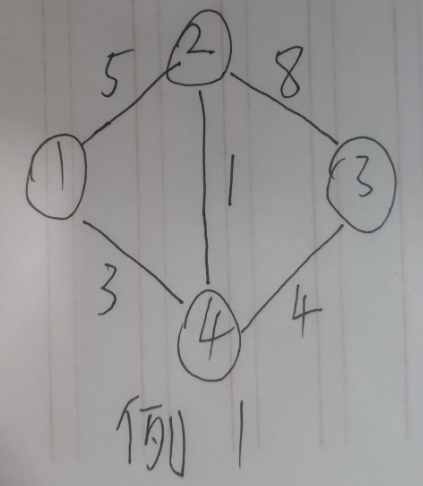 2
5 8
1 1 3
3 4
4
例 1